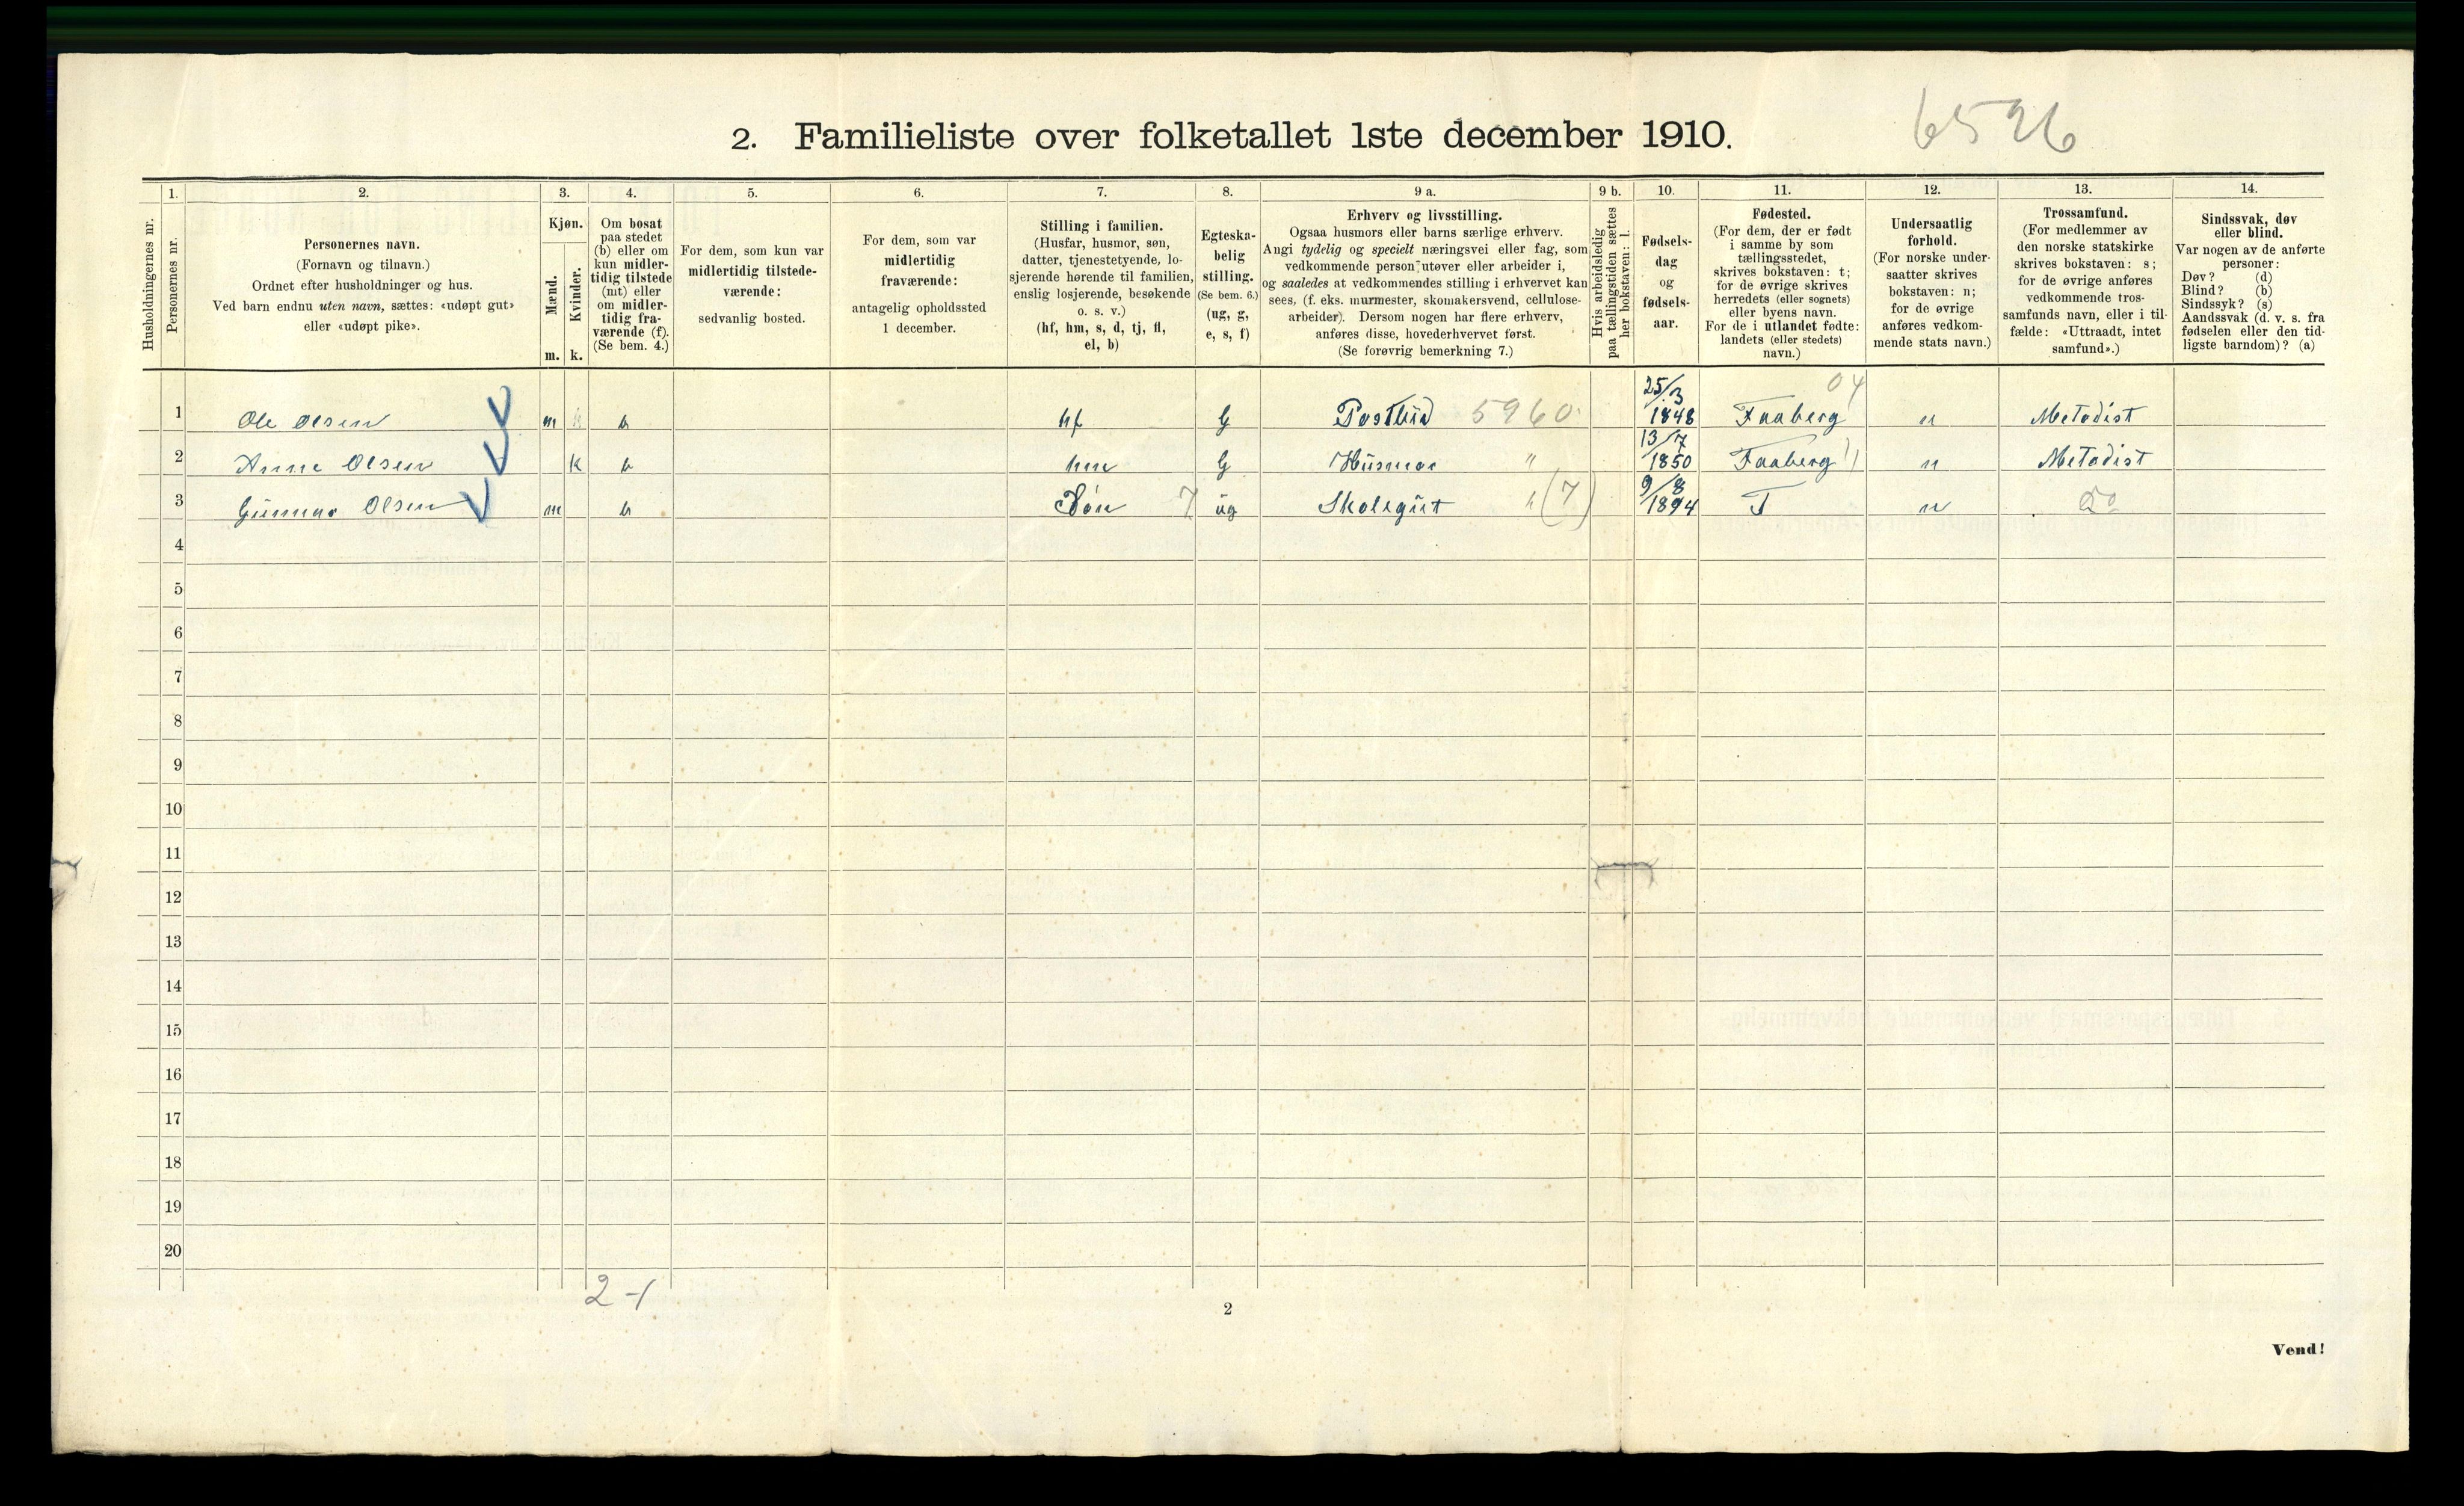 2. Familieliste over folketallet 1ste december 1910.
6526
Husholdningernes nr.
1.
Personernes nr.
2.
Personernes navn.
(Fornavn og tilnavn.)
Ordnet efter husholdninger og hus.
Ved barn endnu uten navn, sættes: «udøpt gut»
eller «udøpt pike».
3.
Kjøn.
Mænd.
m.
Kvinder.
k.
4.
Om bosat
paa stedet
(b) eller om
kun midler-
tidig tilstede
(mt) eller
om midler-
tidig fra-
værende (f).
(Se bem. 4.)
5.
For dem, som kun var
midlertidig tilstede-
værende:
sedvanlig bosted.
6.
For dem, som var
midlertidig
fraværende:
antagelig opholdssted
1 december.
7.
Stilling i familien.
(Husfar, husmor, søn,
datter, tjenestetyende, lo-
sjerende hørende til familien,
enslig losjerende, besøkende
o. s. v.)
(hf, hm, s, d, tj, fl,
el, b)
8.
Egteska-
belig
stilling.
(Se bem. 6.)
(ug, g,
e, s, f)
9 a.
Erhverv og livsstilling.
Ogsaa husmors eller barns særlige erhverv.
Angi tydelig og specielt næringsvei eller fag, som
vedkommende person utøver eller arbeider i,
og saaledes at vedkommendes stilling i erhvervet kan
sees, (f. eks. murmester, skomakersvend, cellulose-
arbeider). Dersom nogen har flere erhverv,
anføres disse, hovederhvervet først.
(Se forøvrig bemerkning 7.)
9 b.
Hvis arbeidsledig
paa tællingstiden sættes
her bokstaven: l.
10.
Fødsels-
dag
og
fødsels-
aar.
11.
Fødested.
(For dem, der er født
i samme by som
tællingsstedet,
skrives bokstaven: t;
for de øvrige skrives
herredets (eller sognets)
eller byens navn.
For de i utlandet fødte:
landets (eller stedets)
navn.)
12.
Undersaatlig
forhold.
(For norske under-
saatter skrives
bokstaven: n;
for de øvrige
anføres vedkom-
mende stats navn.)
13.
Trossamfund.
(For medlemmer av
den norske statskirke
skrives bokstaven: s;
for de øvrige anføres
vedkommende tros-
samfunds navn, eller i til-
fælde: «Uttraadt, intet
samfund».)
14.
Sindssvak, døv
eller blind.
Var nogen av de anførte
personer:
Døv? (d)
Blind? (b)
Sindssyk? (s)
Aandssvak (d. v. s. fra
fødselen eller den tid-
ligste barndom)? (a)
1 Ole Olsen m b hf G Postbud 5960 25/3 1848 Faaberg 04 n Metodist
2 Anne Olsen k b hm G Husmor " 13/7 1850 Faaberg n Metodist
3 Gunnar Olsen m b Søn 7 ug Skolegut (7) 9/8 1894 T n Do
4
5
6
7
8
9
10
11
12
13
14
15
16
17
18
19
20
2-1
2
Vend!